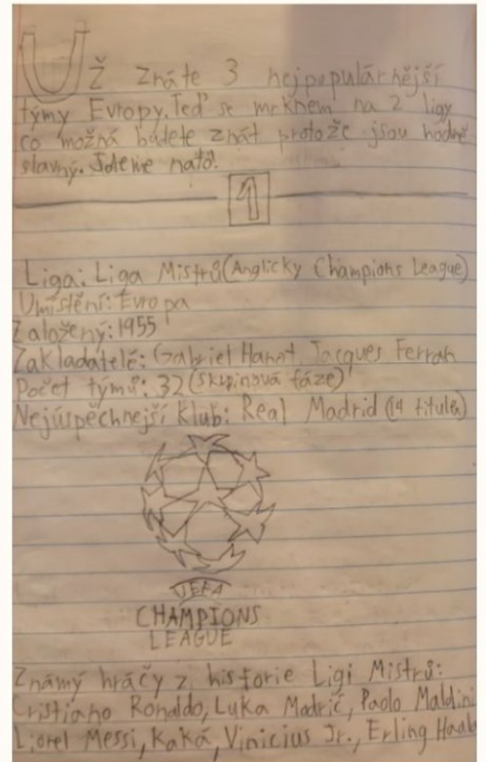 Už znáte 3 nejpopulárnější
týmy Evropy. Teď se mrknem na 2 ligy
co možná budete znát protože jsou hodně
slavný. Jdeme nato.
1
Liga: Liga Mistrů (Anglicky Champions League)
Umístění: Evropa
Založený: 1955
Zakladatelé: Gabriel Hanot, Jacques Ferran
Počet týmů: 32 (skupinová fáze)
Nejúspěchnejší klub: Real Madrid (14 titulů)
UEFA
CHAMPIONS
LEAGUE
Známý hráčy z historie Ligi Mistrů:
Cristiano Ronaldo, Luka Modrič, Paolo Maldini
Lionel Messi, Kaká, Vinicius Jr., Erling Haala